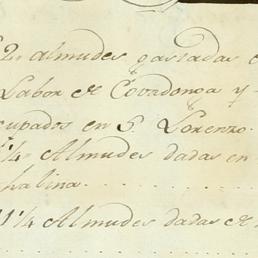 2 almudes gastadas
Labor de Covadonga y
cupados en S. Lorenzo
1/4 Almudes dadas en
halina
1 1/4 Almudes dadas de